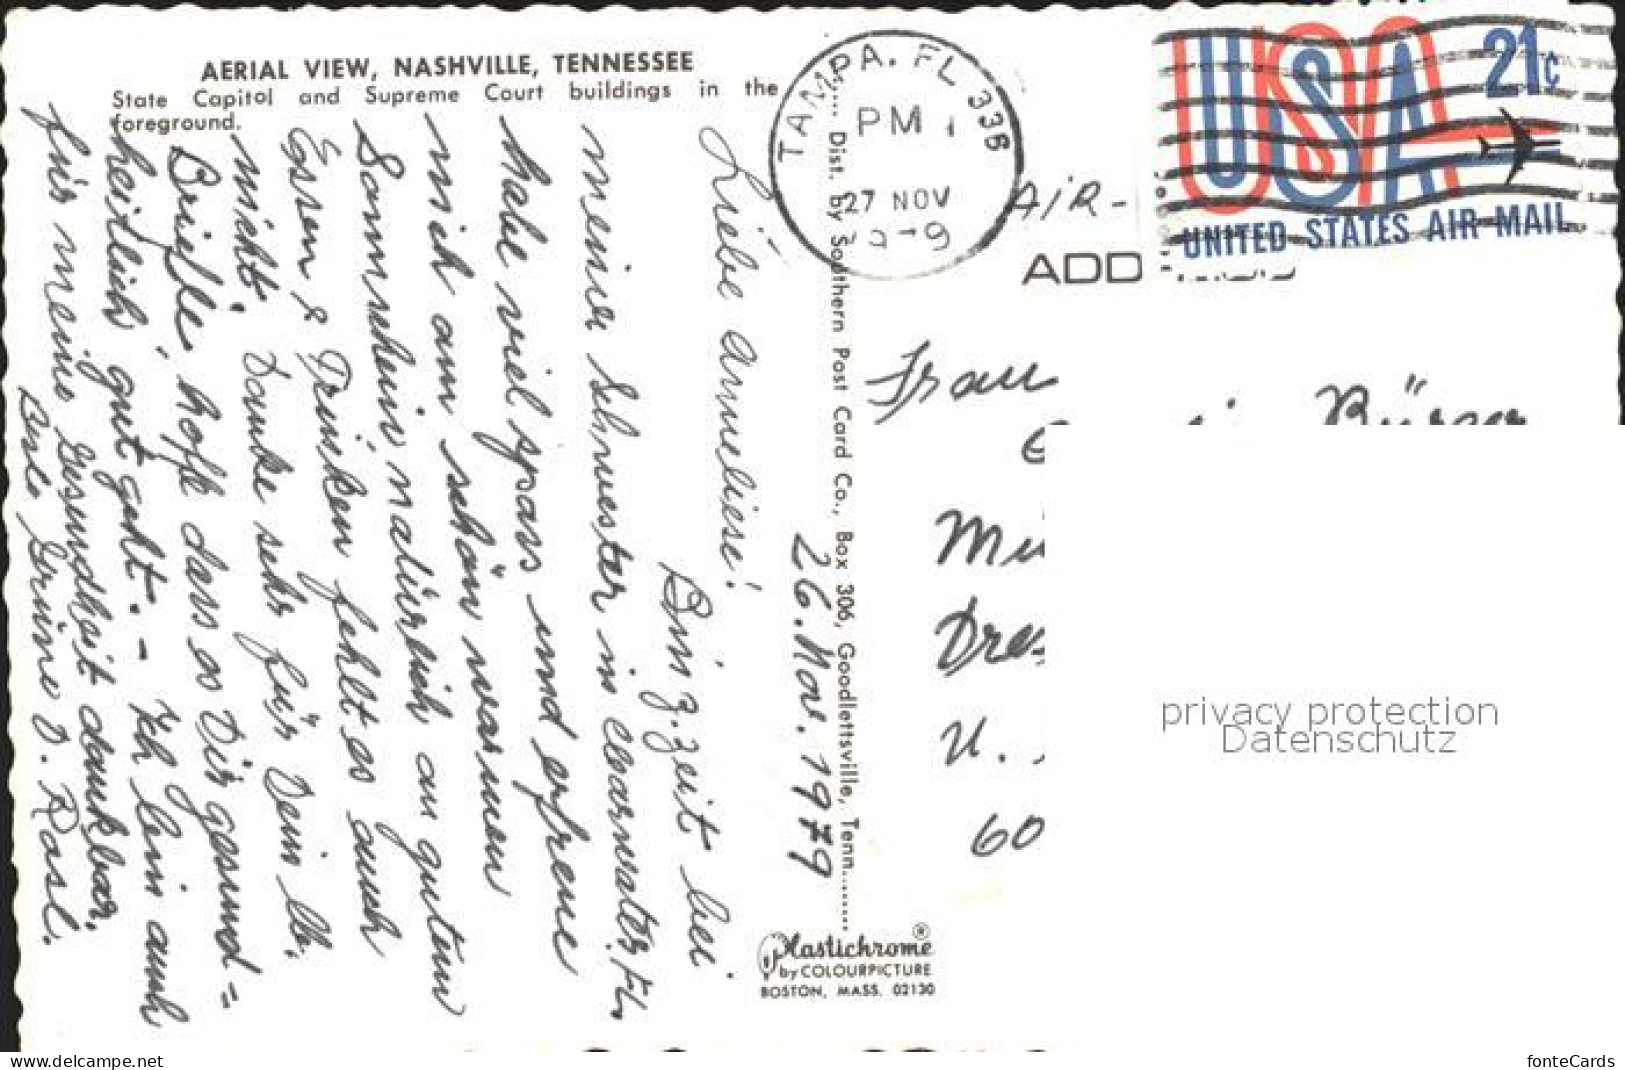 AERIAL VIEW, NASHVILLE, TENNESSEE
State Capitol and Supreme Court buildings in the
foreground.
26. Nov. 1979
Liebe Anneliese!
Bin z. Zeit bei
meiner Schwester in Clearwater, Fl.
habe viel spass und erfreue
mich am schön warmen
Sonnenschein natürlich an guten
Essen & Trinken fehlt es auch
nicht. Danke sehr für Dein lb.
Briefle, hoffe dass es Dir gesund=
heitlich gut geht. - Ich bin auch
für meine Gesundheit dankbar.
Grüsse D. Rasl.
..... Dist. by Southern Post Card Co., Box 306, Goodlettsville, Tenn.........
Plastichrome®
by COLOURPICTURE
BOSTON, MASS. 02130
TAMPA. FL 336
PM
27 NOV
1979
AIR-
ADD
USA
21c
UNITED STATES AIR MAIL
Frau
Bürger
Mü
Dre
U.
60
privacy protection
Datenschutz
www.delcampe.net
fonteCards